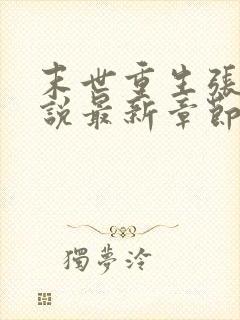 末世重生張
說最新章節
獨夢泠